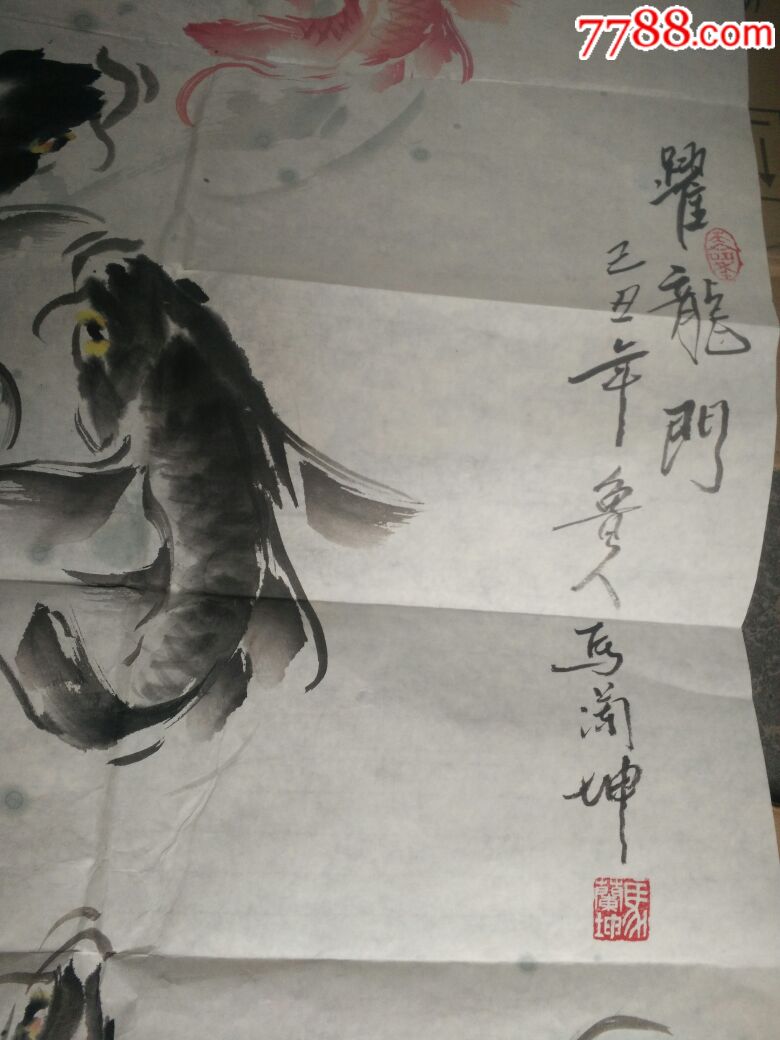 7788.com
躍龍門
己丑年魯人馬蘭坤
馬蘭坤